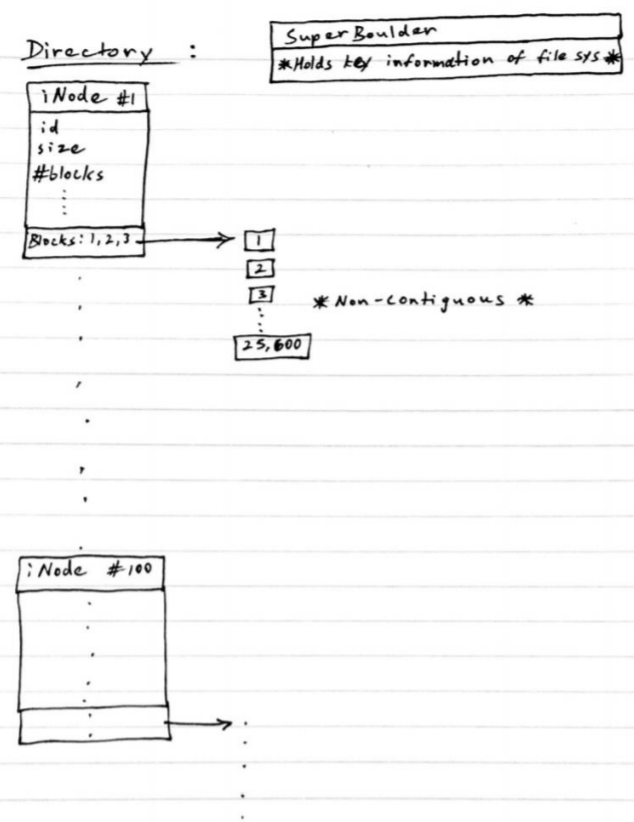 Directory :
Super Boulder
*Holds key information of file sys*
iNode #1
id
size
#blocks
Blocks: 1, 2, 3
1
2
3
*Non-contiguous*
25,600
iNode #100